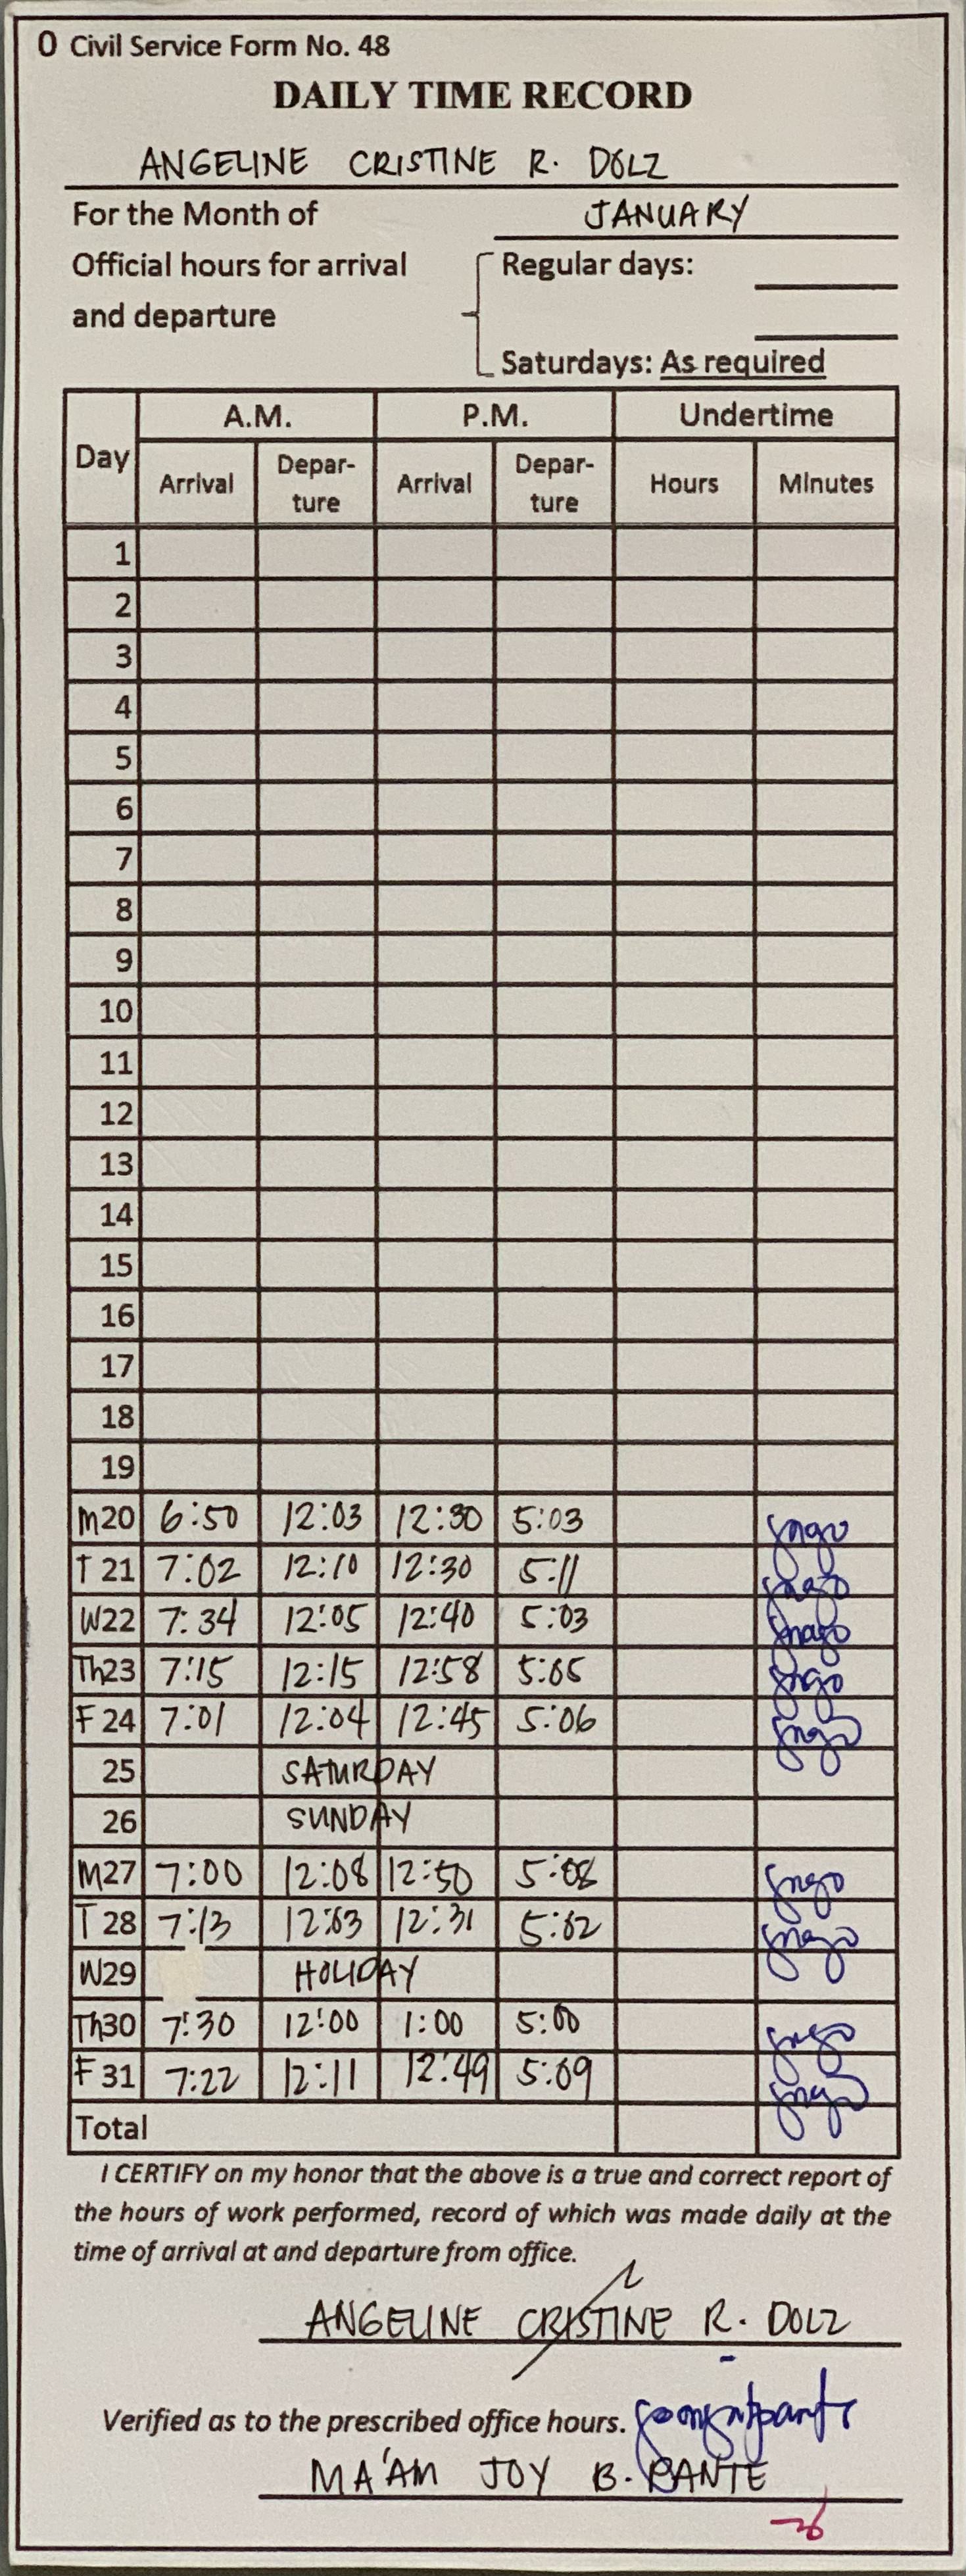 0 Civil Service Form No. 48
DAILY TIME RECORD
ANGELINE CRISTINE R. DOLZ
For the Month of JANUARY
Official hours for arrival Regular days:
and departure
Saturdays: As required
Day A.M. P.M. Undertime
Arrival Depar-ture Arrival Depar-ture Hours Minutes
1
2
3
4
5
6
7
8
9
10
11
12
13
14
15
16
17
18
19
M20 6:50 12:03 12:30 5:03
T 21 7:02 12:10 12:30 5:11
W22 7:34 12:05 12:40 5:03
Th23 7:15 12:15 12:58 5:05
F 24 7:01 12:04 12:45 5:06
25 SATURDAY
26 SUNDAY
M27 7:00 12:08 12:50 5:08
T 28 7:13 12:03 12:31 5:02
W29 HOLIDAY
Th30 7:30 12:00 1:00 5:00
F 31 7:22 12:11 12:49 5:09
Total
I CERTIFY on my honor that the above is a true and correct report of
the hours of work performed, record of which was made daily at the
time of arrival at and departure from office.
ANGELINE CRISTINE R. DOLZ
Verified as to the prescribed office hours.
MA'AM JOY B. PANTE